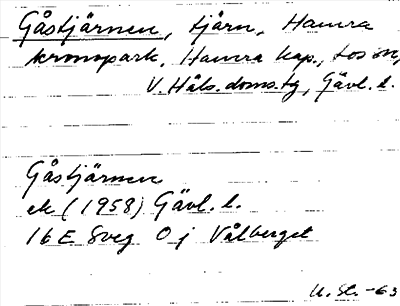 Gåstjärnen, tjärn, Hamra
kronopark, Hamra kap., Los sn,
V. Häls. doms.tg, Gävl. l.
Gåstjärnen
ek (1958) Gävl. l.
16 E Sveg 0 j Vålberget
U. St. -63